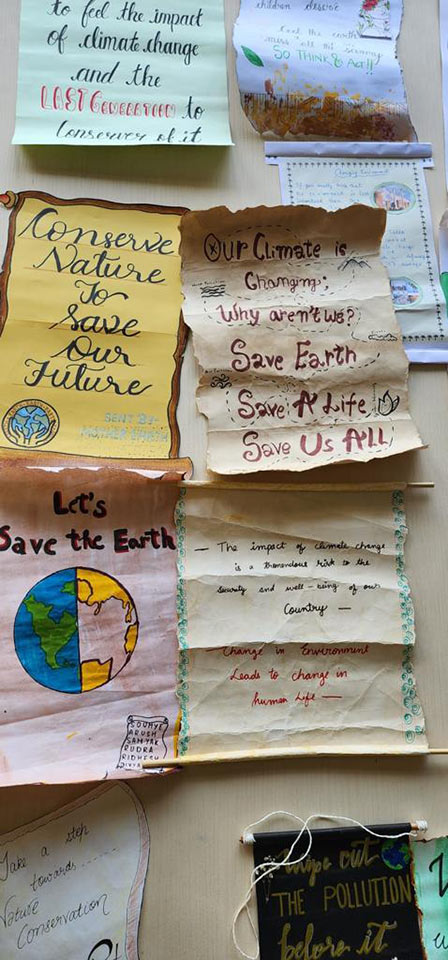 to feel the impact
of climate change
and the
LAST Generation to
Conserver of it
children deserve
feel the earth
miss all the
SO THINK & Act!!
If you really think that
Conserve
Nature
To
Save
Our
Future
SENT BY-
MOTHER EARTH
Our Climate is
Changing;
Why aren't we?
Save Earth
Save A Life
Save Us All
Let's
Save the Earth
SOUMYE
ARUSH
SAMYAK
RUDRA
RIDHESH
DIVYA
— The impact of climate change
is a tremendous risk to the
security and well-being of our
Country —
Change in Environment
Leads to change in
human Life —
Take a step
towards
Nature
Conservation
Wipe out
THE POLLUTION
before it